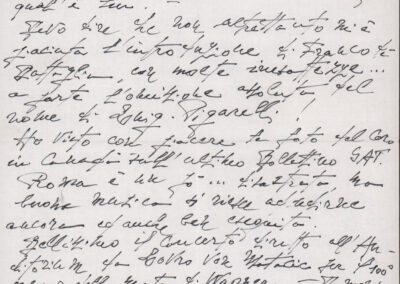 qual'è
Devo dire che non altrettanto mi è
piaciuta l'introduzione di Franco de
Battaglia, con molte inesattezze...
e forte l'omissione assoluta del
nome di Luig. Pigarelli!!
Ho visto con piacere la foto del Coro
in Canada sull'ultimo Bollettino SAT.
Roma è un pò... disastrata ma
buona musica si riesce ad udirne
ancora ed anche ben eseguita.
Bellissimo il Concerto diretto all'Au-
ditorium da Lovro von Matacic per il 100°
della morte di Wagner